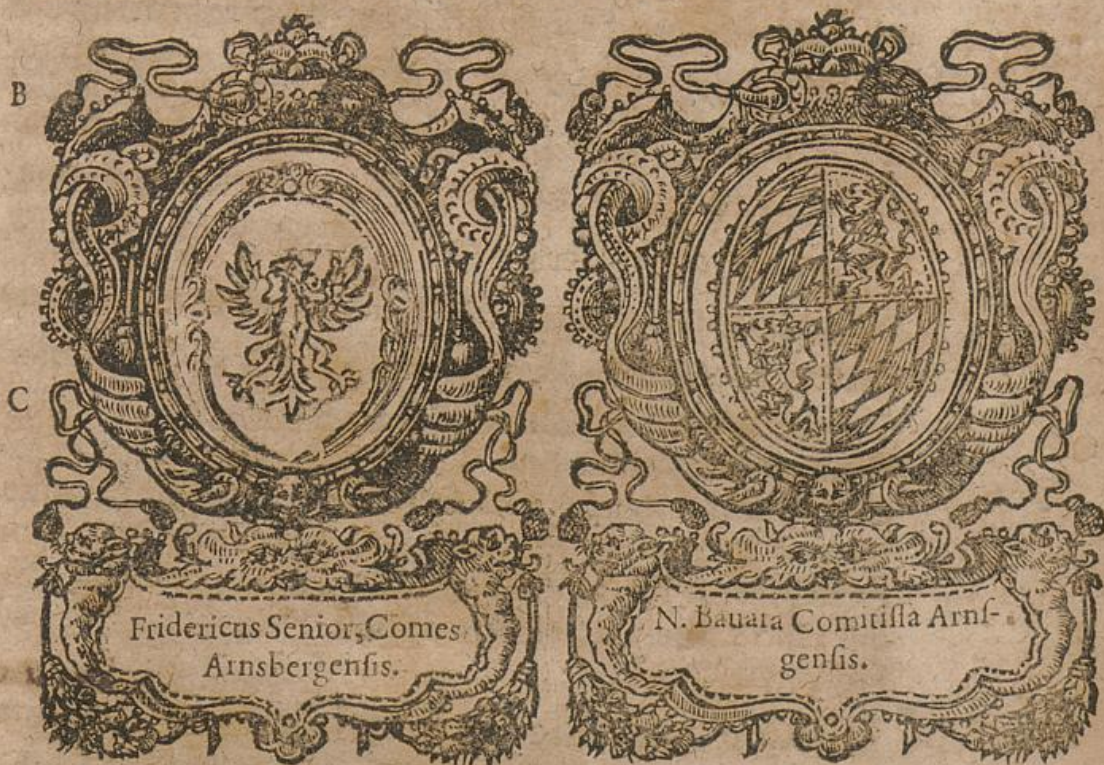 B
C
Fridericus Senior, Comes
Arnsbergensis.
N. Bauara Comitissa Arns-
gensis.